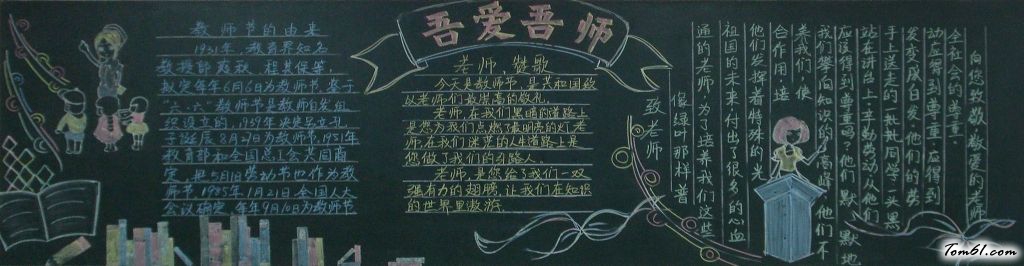 吾爱吾师
教师节的由来
1931年,教育界知名
教授邰爽秋、程其保等,
拟定每年6月6日为教师节,鉴于
"六·六"教师节是教师自发组
织设立的,1939年决定立孔
子诞辰8月27日为教师节,1951年
教育部和全国总工会共同商
定,把5月1日劳动节也作为教
师节1985年1月21日全国人大
会议确定 每年9月10日为教师节
老师 赞歌
今天是教师节,是共和国致
以老师们最崇高的敬礼。
老师,在我们黑暗的道路上
是您为我们点燃了最明亮的灯
老师,在我们迷茫的人生道路上是
您做了我们的引路人。
老师,是您给了我们一双
强有力的翅膀,让我们在知识
的世界里遨游.
致老师
像绿叶那样普
通的老师,为了培养我们这些
祖国的未来付出了很多的心血
他们发挥着特殊的光
合作用,
类我们,使
我们攀向知识的高峰,他们不
应该得到尊重吗?他们默默地
站在讲台上,辛勤劳动,从他们
手上送走的一批批同学,一头黑
发变成白发,他们的劳
动应得到尊重,应得到
全社会的尊重.
向您致敬,敬爱的老师
Tom61.com